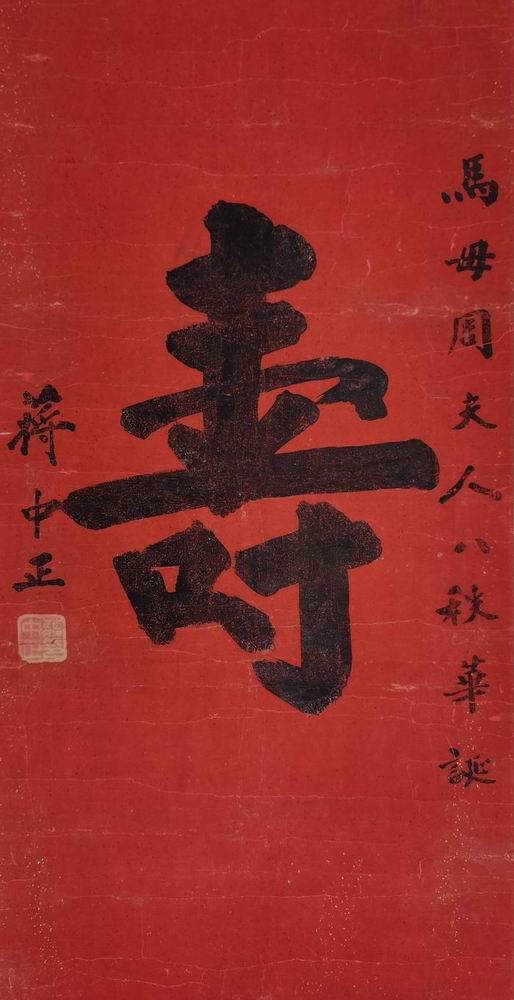 馬母周夫人八秩華誕
壽
蔣中正